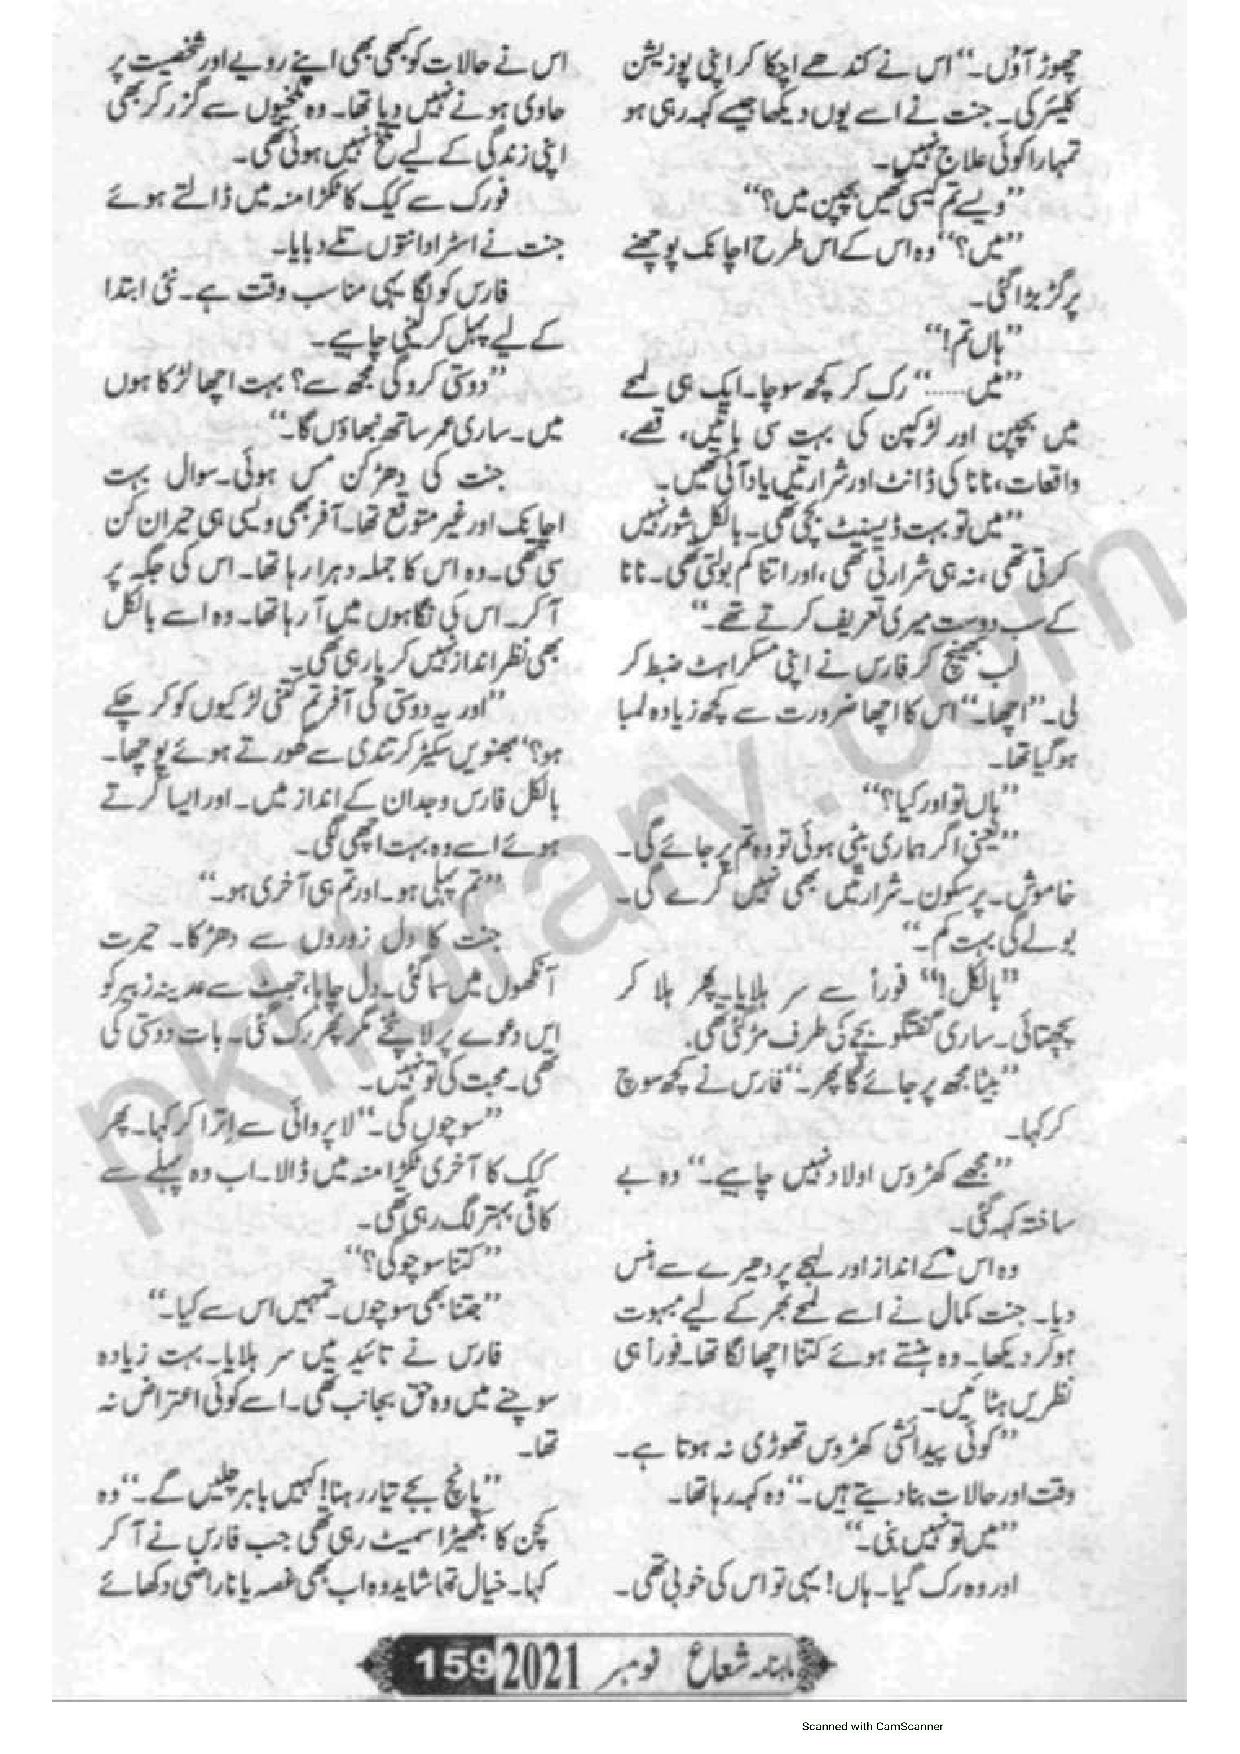 چھوڑ آؤں۔“ اس نے کندھے اچکا کر اپنی پوزیشن
کلیئر کی۔ جنت نے اسے یوں دیکھا جیسے کہہ رہی ہو
تمہارا کوئی علاج نہیں۔
”ویسے تم کیسی تھیں بچپن میں؟“
”میں؟“ وہ اس کے اس طرح اچانک پوچھنے
پر گڑبڑا گئی۔
”ہاں تم!“
”میں......“ رک کر کچھ سوچا۔ ایک ہی لمحے
میں بچپن اور لڑکپن کی بہت سی باتیں، قصے،
واقعات، نانا کی ڈانٹ اور شرارتیں یاد آئی تھیں۔
”میں تو بہت ڈیسنٹ بچی تھی۔ بالکل شور نہیں
کرتی تھی، نہ ہی شرارتی تھی، اور اتنا کم بولتی تھی۔ نانا
کے سب دوست میری تعریف کرتے تھے۔“
لب بھینچ کر فارس نے اپنی مسکراہٹ ضبط کر
لی۔ ”اچھا۔“ اس کا اچھا ضرورت سے کچھ زیادہ لمبا
ہو گیا تھا۔
”ہاں تو اور کیا؟“
”یعنی اگر ہماری بیٹی ہوئی تو وہ تم پر جائے گی۔
خاموش۔ پرسکون۔ شرارتیں بھی نہیں کرے گی۔
بولے گی بہت کم۔“
”بالکل!“ فوراً سے سر ہلایا۔ پھر ہلا کر
پچھتائی۔ ساری گفتگو بچے کی طرف مڑ گئی تھی۔
”بیٹا مجھ پر جائے گا پھر۔“ فارس نے کچھ سوچ
کر کہا۔
”مجھے کھڑوس اولاد نہیں چاہیے۔“ وہ بے
ساختہ کہہ گئی۔
وہ اس کے انداز اور لہجے پر دھیرے سے ہنس
دیا۔ جنت کمال نے اسے لمحے بھر کے لیے مبہوت
ہو کر دیکھا۔ وہ ہنستے ہوئے کتنا اچھا لگا تھا۔ فوراً ہی
نظریں ہٹائیں۔
”کوئی پیدائشی کھڑوس تھوڑی نہ ہوتا ہے۔
وقت اور حالات بنا دیتے ہیں۔“ وہ کہہ رہا تھا۔
”میں تو نہیں بنی۔“
اور وہ رک گیا۔ ہاں! یہی تو اس کی خوبی تھی۔
اس نے حالات کو کبھی بھی اپنے رویے اور شخصیت پر
حاوی ہونے نہیں دیا تھا۔ وہ تلخیوں سے گزر کر بھی
اپنی زندگی کے لیے تلخ نہیں ہوئی تھی۔
فورک سے کیک کا ٹکڑا منہ میں ڈالتے ہوئے
جنت نے اسٹرا دانتوں تلے دبایا۔
فارس کو لگا یہی مناسب وقت ہے۔ نئی ابتدا
کے لیے پہل کر لینی چاہیے۔
”دوستی کرو گی مجھ سے؟ بہت اچھا لڑکا ہوں
میں۔ ساری عمر ساتھ نبھاؤں گا۔“
جنت کی دھڑکن مس ہوئی۔ سوال بہت
اچانک اور غیر متوقع تھا۔ آفر بھی ویسی ہی حیران کن
سی تھی۔ وہ اس کا جملہ دہرا رہا تھا۔ اس کی جگہ پر
آ کر۔ اس کی نگاہوں میں آ رہا تھا۔ وہ اسے بالکل
بھی نظر انداز نہیں کر پا رہی تھی۔
”اور یہ دوستی کی آفر تم کتنی لڑکیوں کو کر چکے
ہو؟“ بھنویں سکیڑ کر تندی سے گھورتے ہوئے پوچھا۔
بالکل فارس وجدان کے انداز میں۔ اور ایسا کرتے
ہوئے اسے وہ بہت اچھی لگی۔
”تم پہلی ہو۔ اور تم ہی آخری ہو۔“
جنت کا دل زوروں سے دھڑکا۔ حیرت
آنکھوں میں سما گئی۔ دل چاہا، جھٹ سے مدینہ زبیر کو
اس دعوے پر لائے مگر پھر رک گئی۔ بات دوستی کی
تھی۔ محبت کی تو نہیں۔
”سوچوں گی۔“ لاپروائی سے اِترا کر کہا۔ پھر
کیک کا آخری ٹکڑا منہ میں ڈالا۔ اب وہ پہلے سے
کافی بہتر لگ رہی تھی۔
”کتنا سوچو گی؟“
”جتنا بھی سوچوں۔ تمہیں اس سے کیا۔“
فارس نے تائید میں سر ہلایا۔ بہت زیادہ
سوچنے میں وہ حق بجانب تھی۔ اسے کوئی اعتراض نہ
تھا۔
”پانچ بجے تیار رہنا! کہیں باہر چلیں گے۔“ وہ
کچن کا بکھیڑا سمیٹ رہی تھی جب فارس نے آ کر
کہا۔ خیال تھا شاید وہ اب بھی غصہ یا ناراضی دکھائے
ماہنامہ شعاع نومبر 2021 159
pklibrary.com
Scanned with CamScanner